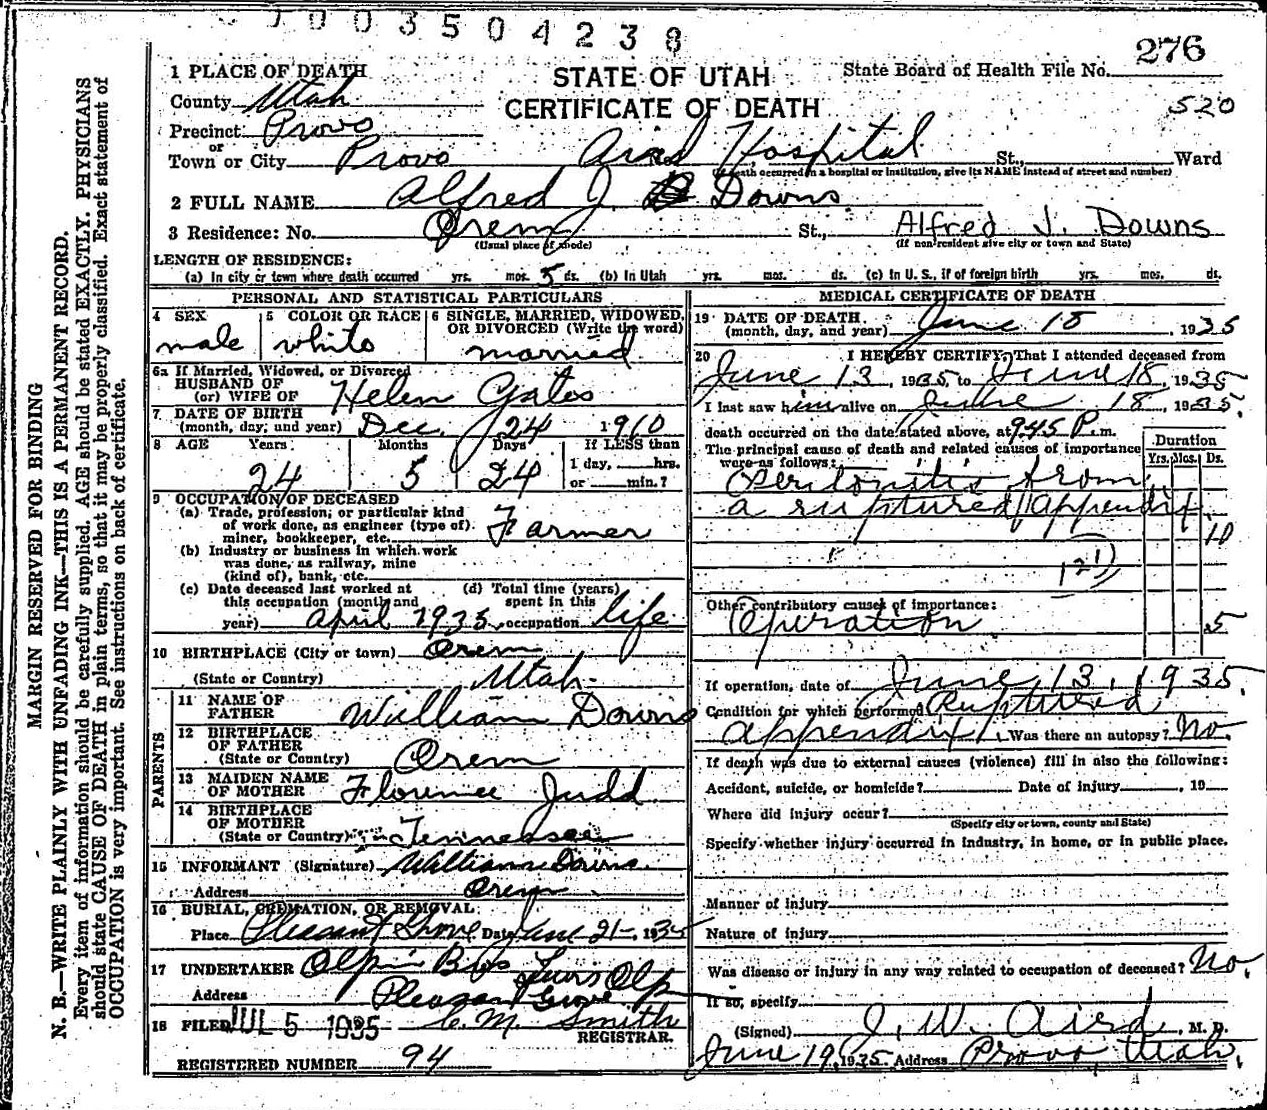 7003504238
276
1 PLACE OF DEATH
STATE OF UTAH
State Board of Health File No.
County Utah
CERTIFICATE OF DEATH
520
Precinct Provo
or
Town or City Provo Aird Hospital St., Ward
(If death occurred in a hospital or institution, give its NAME instead of street and number)
2 FULL NAME Alfred J. Downs
3 Residence: No. Orem St., Alfred J. Downs
(Usual place of abode) (If nonresident give city or town and State)
LENGTH OF RESIDENCE:
(a) In city or town where death occurred yrs. mos. 5 ds. (b) In Utah yrs. mos. ds. (c) In U. S., if of foreign birth yrs. mos. ds.
PERSONAL AND STATISTICAL PARTICULARS
4 SEX male
5 COLOR OR RACE white
6 SINGLE, MARRIED, WIDOWED, OR DIVORCED (Write the word) married
6a If Married, Widowed, or Divorced
HUSBAND OF
(or) WIFE OF Helen Gates
7 DATE OF BIRTH
(month, day, and year) Dec. 24 1910
8 AGE Years Months Days If LESS than
24 5 24 1 day, hrs.
or min.?
9 OCCUPATION OF DECEASED
(a) Trade, profession, or particular kind
of work done, as engineer (type of).
miner, bookkeeper, etc. Farmer
(b) Industry or business in which work
was done, as railway, mine
(kind of), bank, etc.
(c) Date deceased last worked at (d) Total time (years)
this occupation (month and spent in this
year) April 1935 occupation life
10 BIRTHPLACE (City or town) Orem
(State or Country) Utah
PARENTS
11 NAME OF
FATHER William Downs
12 BIRTHPLACE
OF FATHER
(State or Country) Orem
13 MAIDEN NAME
OF MOTHER Florence Judd
14 BIRTHPLACE
OF MOTHER
(State or Country) Tennessee
15 INFORMANT (Signature) William Downs
Address Orem
16 BURIAL, CREMATION, OR REMOVAL
Place Pleasant Grove Date June 21-, 1935
17 UNDERTAKER Olpin Bros Lewis Olp
Address Pleasant Grove
18 FILED JUL 5 1935 C. M. Smith
REGISTRAR.
REGISTERED NUMBER 94
MEDICAL CERTIFICATE OF DEATH
19 DATE OF DEATH
(month, day, and year) June 18, 1935
20 I HEREBY CERTIFY, That I attended deceased from
June 13, 1935, to June 18, 1935
I last saw him alive on June 18, 1935.
death occurred on the date stated above, at 945 P. m.
The principal cause of death and related causes of importance
were as follows:
Duration
Yrs. Mos. Ds.
Peritonitis from
a ruptured Appendix.
10
121
Other contributory causes of importance:
Operation 5
If operation, date of June 13, 1935.
Condition for which performed Ruptured
appendix. Was there an autopsy? No.
If death was due to external causes (violence) fill in also the following:
Accident, suicide, or homicide? Date of injury , 19
Where did injury occur?
(Specify city or town, county and State)
Specify whether injury occurred in industry, in home, or in public place.
Manner of injury
Nature of injury
Was disease or injury in any way related to occupation of deceased? No.
If so, specify
(Signed) J. W. Aird, M. D.
June 19, 1935 Address Provo Utah.
MARGIN RESERVED FOR BINDING
N. B.—WRITE PLAINLY WITH UNFADING INK—THIS IS A PERMANENT RECORD.
Every item of information should be carefully supplied. AGE should be stated EXACTLY. PHYSICIANS
should state CAUSE OF DEATH in plain terms, so that it may be properly classified. Exact statement of
OCCUPATION is very important. See instructions on back of certificate.